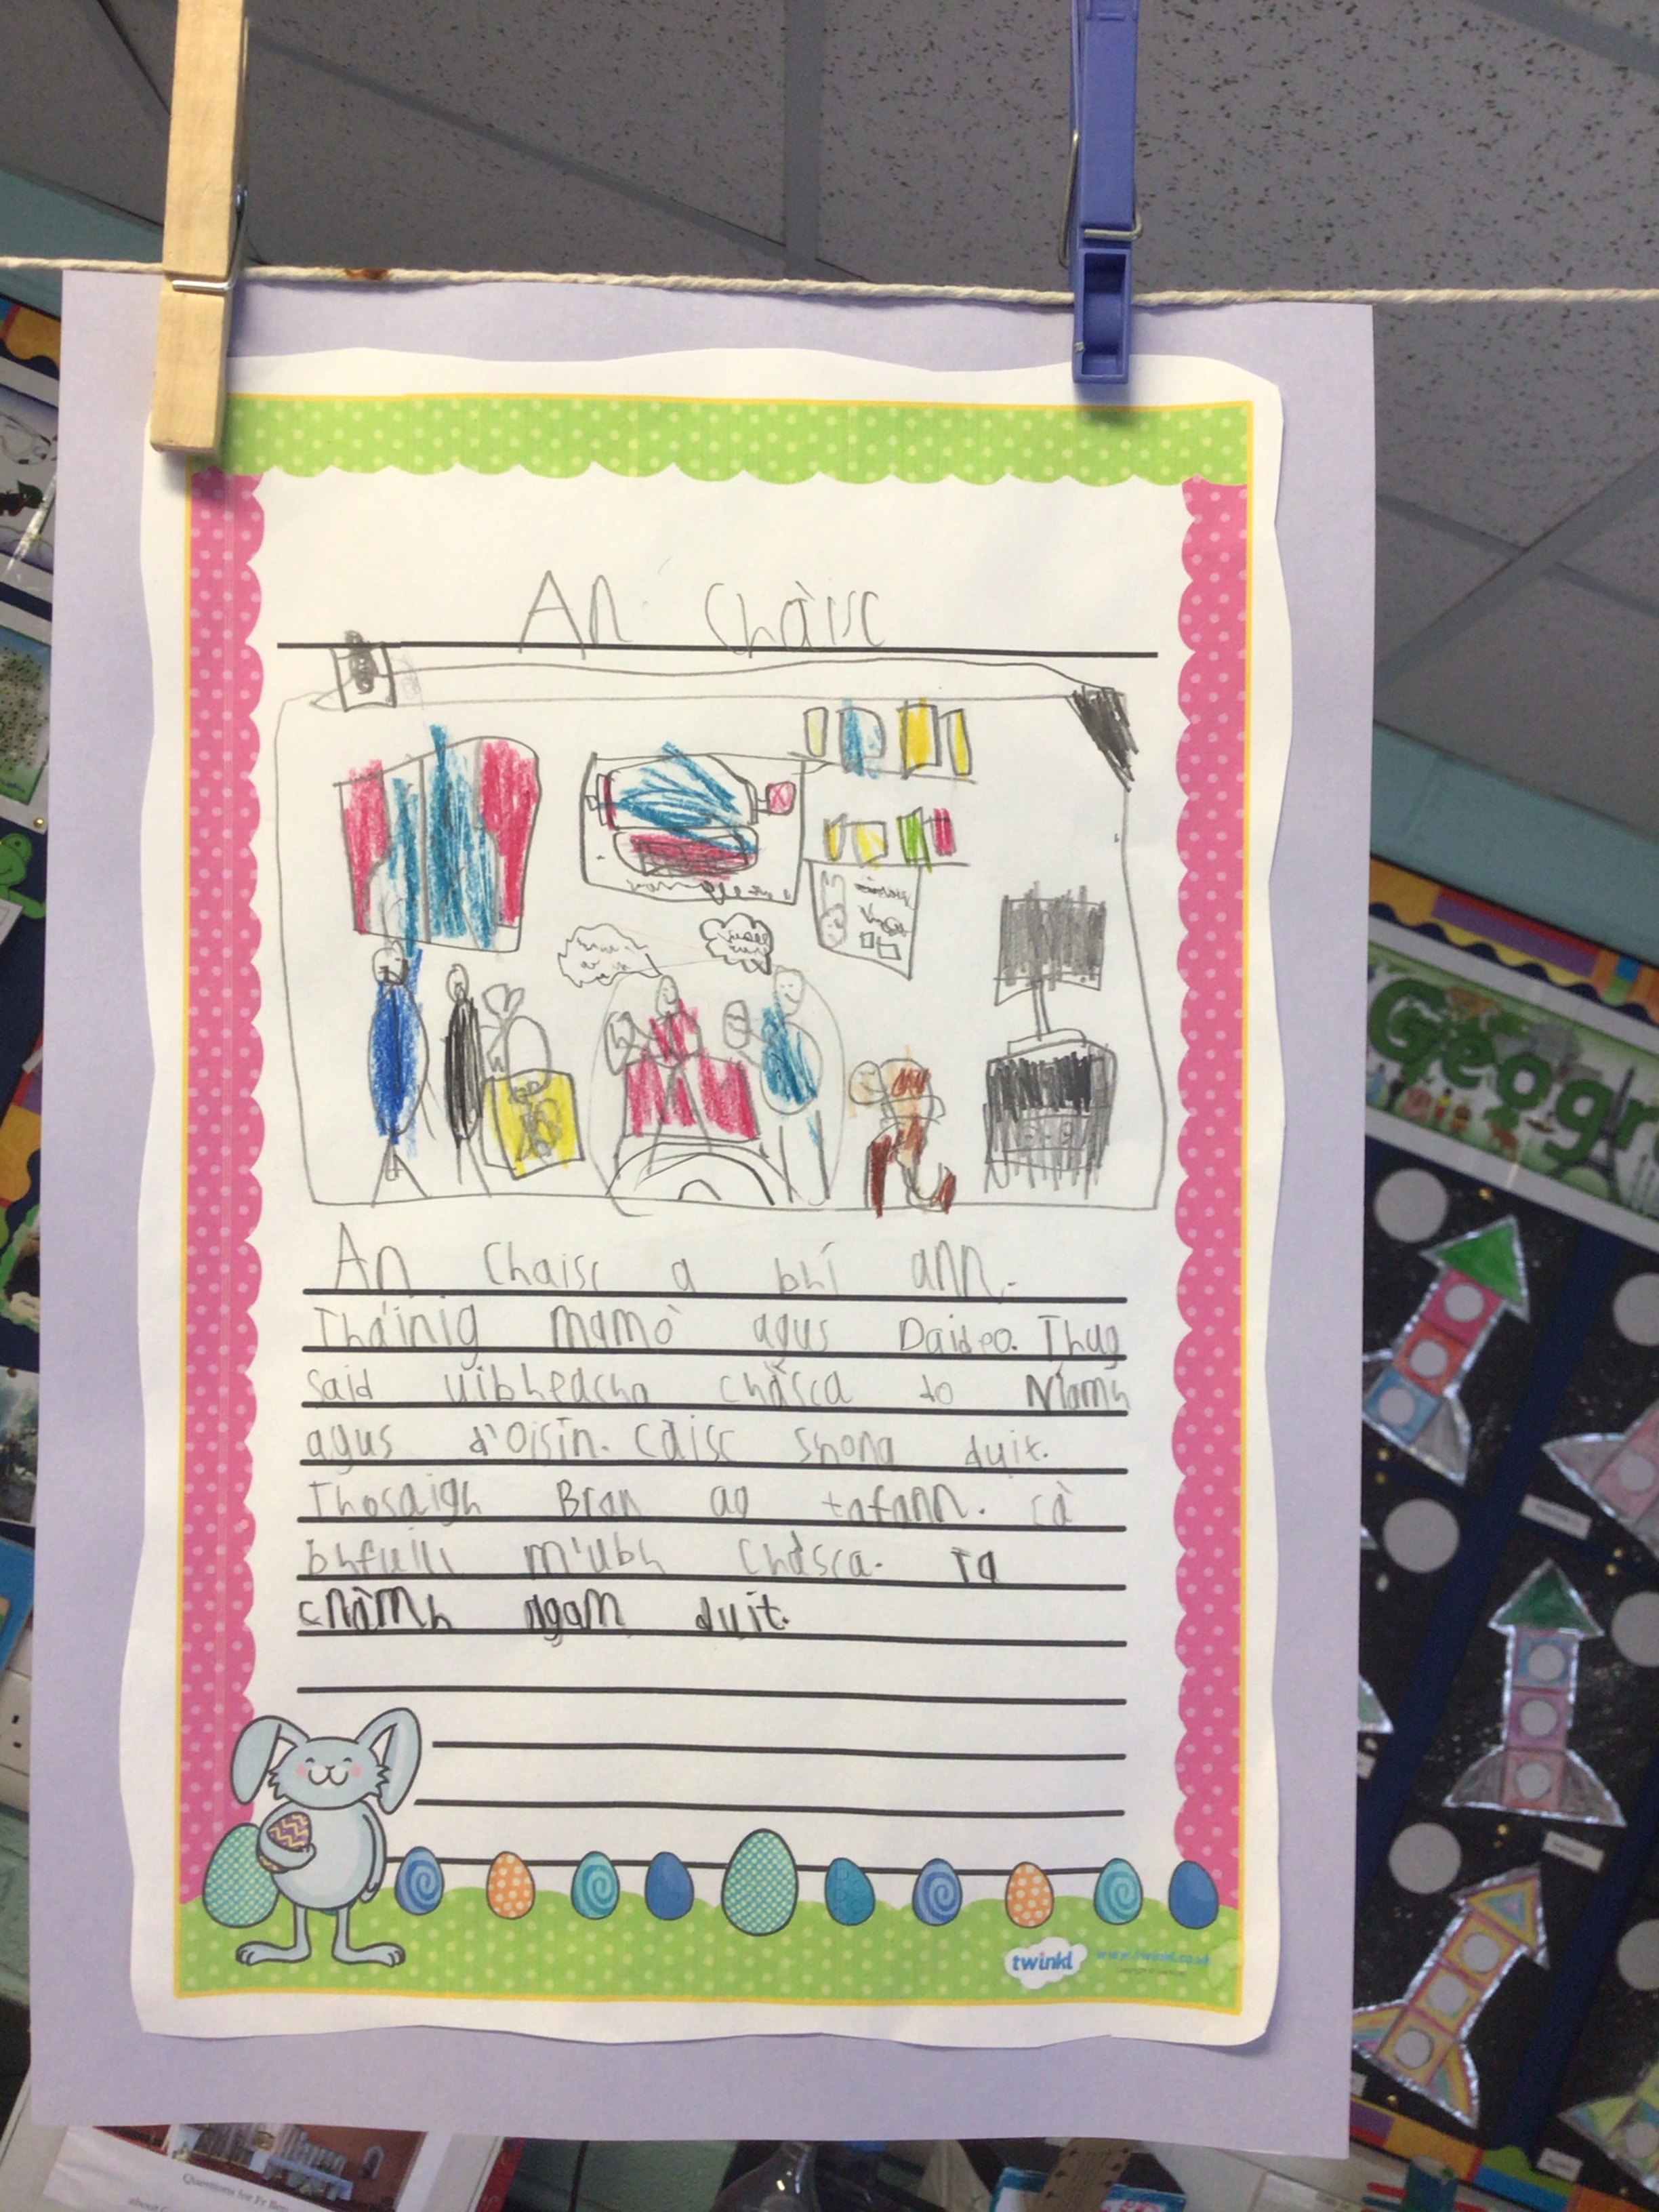 An Chàisc
An Chaisc a bhí ann.
Tháinig mamò agus Daideo. Thug
said uibheacha chàsca do Niamh
agus d'Oisín. Cáisc shona duit.
Thosaigh Bran ag tafann. cà
bhfuil m'ubh Chàsca. Ta
cnàmh agam duit.
twinkl
www.twinkl.co.uk
Geogr
Questions for Fr Ben